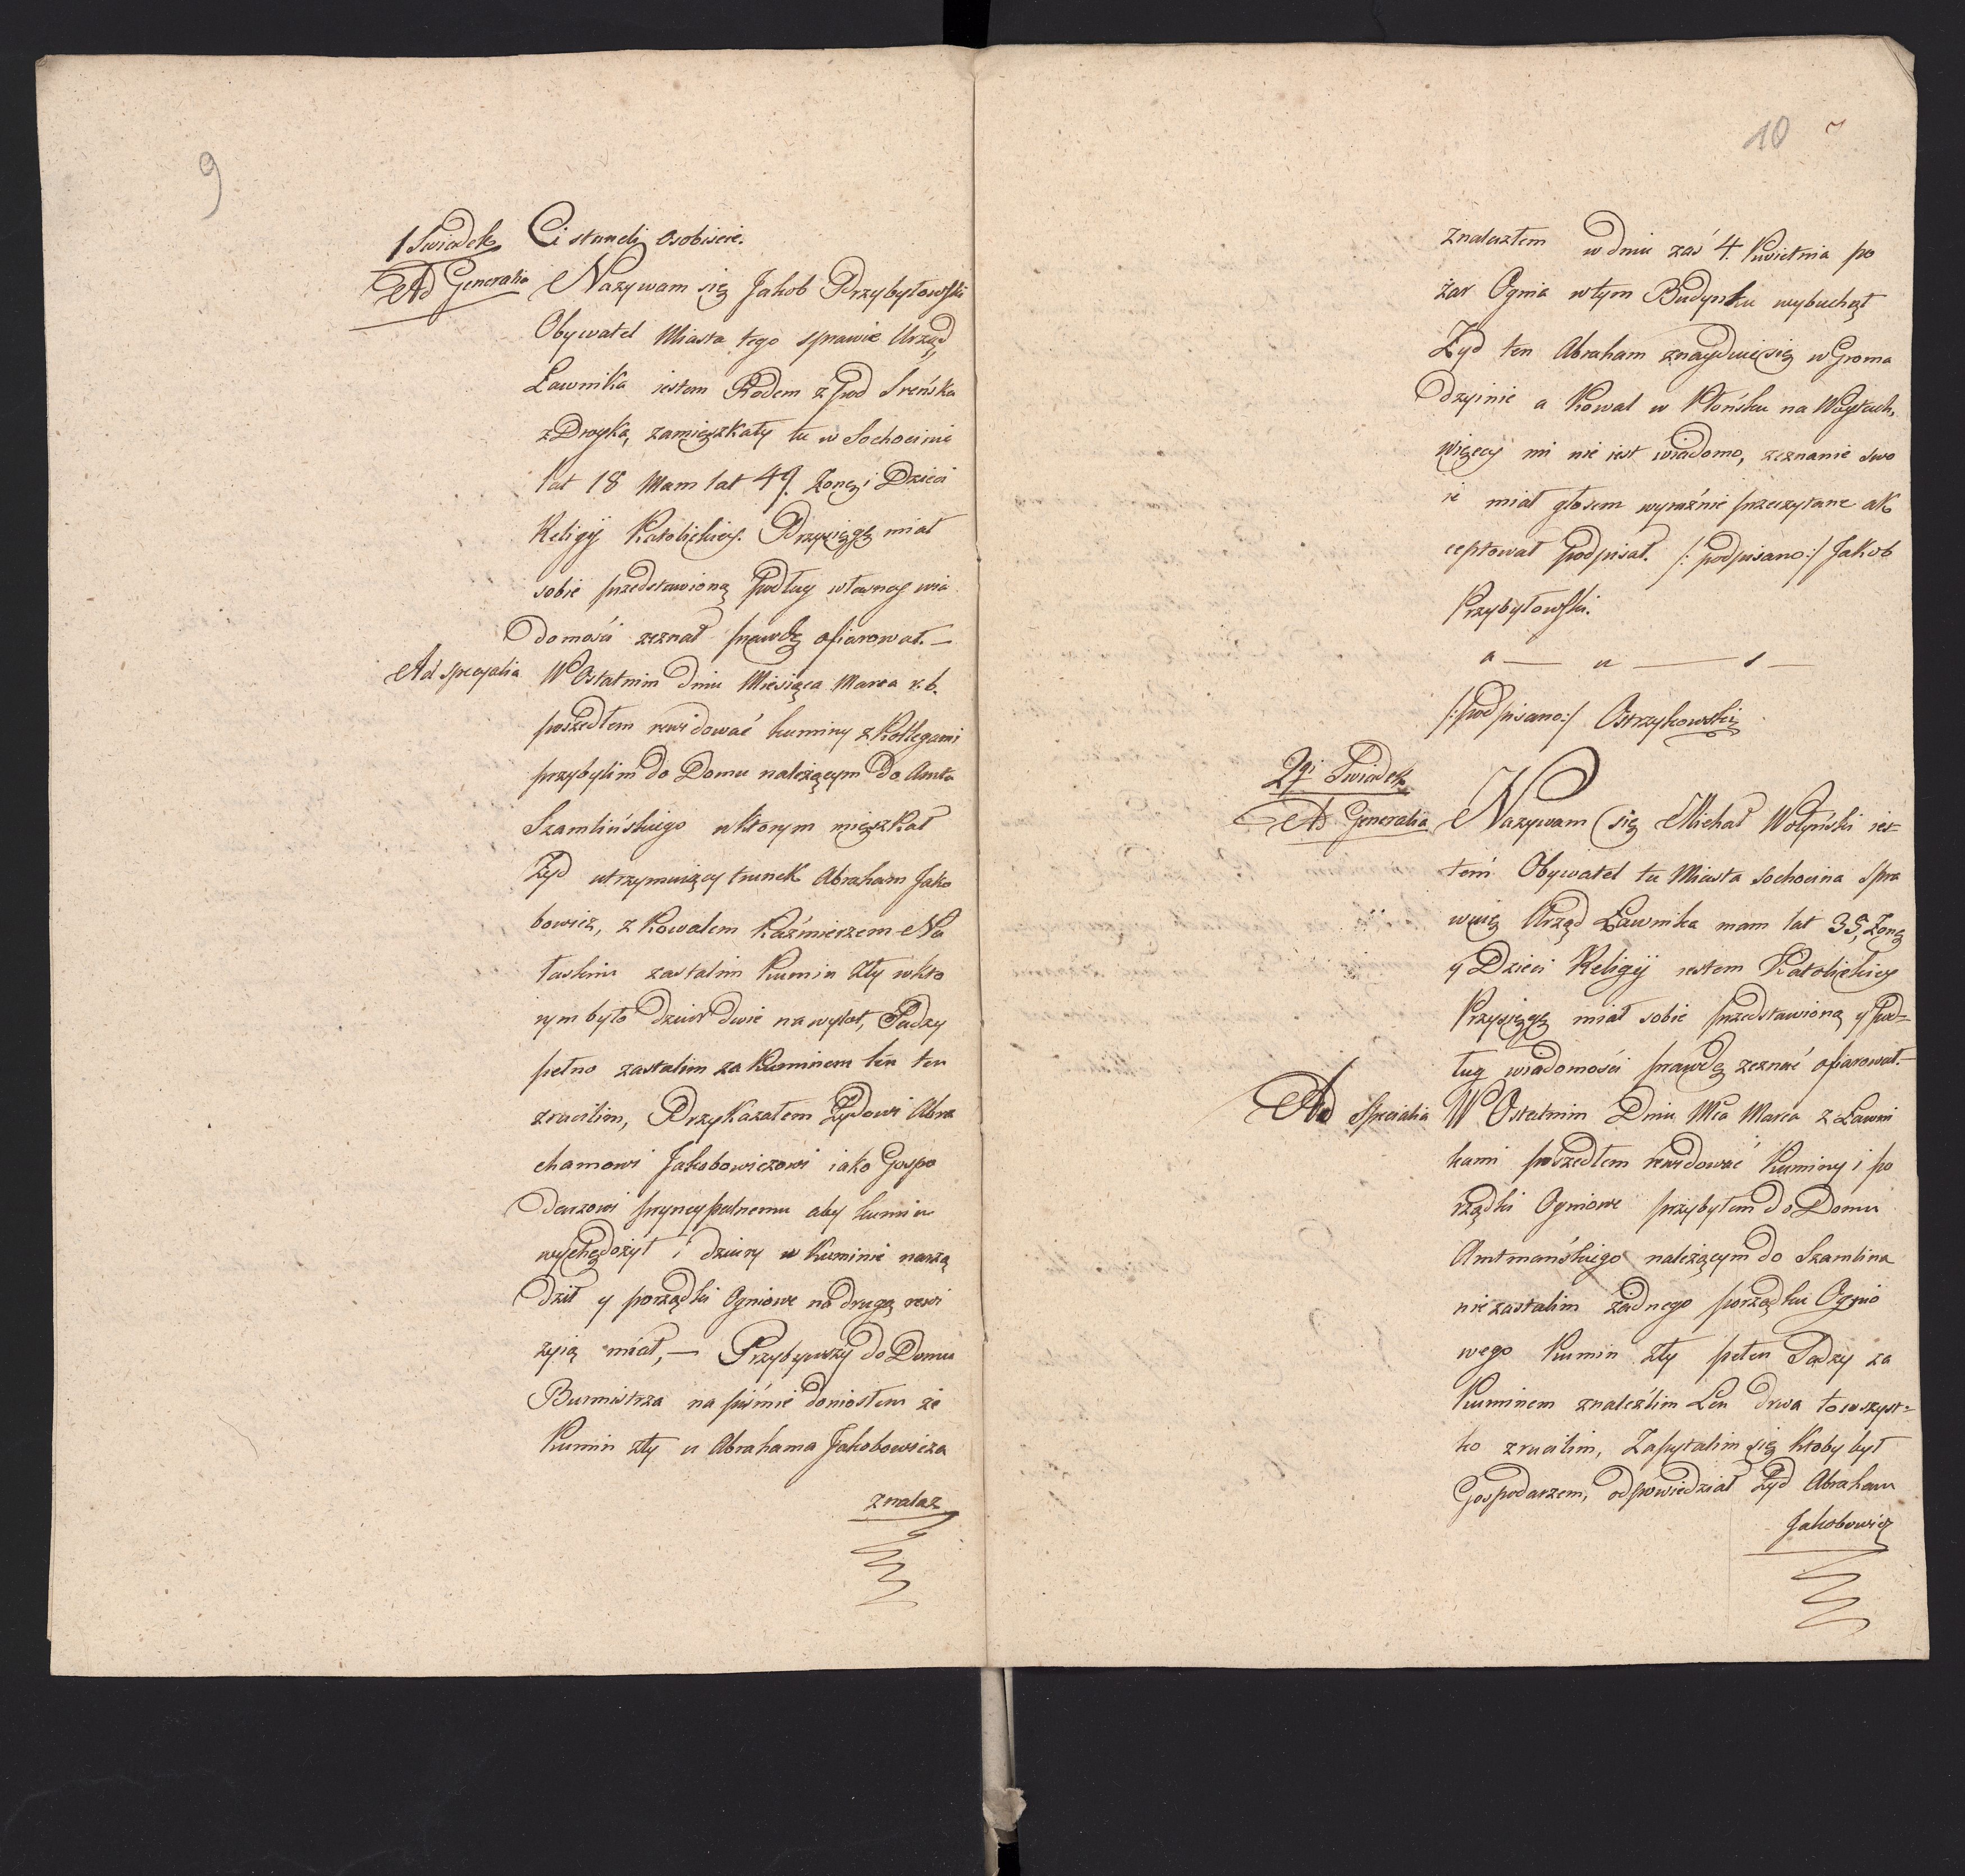 9
1 Swiadek Ci stanęli osobiscie.
Ad Generalia Nazywam się Jakob Przybyłowski
Obywatel Miasta tego sprawie Urząd
Ławnika iestem Rodem z pod Sreńska
z Droyka, zamięszkały tu w Sochocinie
lat 18 Mam lat 49. Żonę i Dzieci
Religij Katolickiey. Przysięgę miał
sobie przedstawioną podług własney wia
domości zeznał prawdę ofiarował. —
Ad specyalia W Ostatnim dniu Miesiąca Marca r. b.
poszedłem rewidować kuminy z Kollegami
przybylim do Domu należącym do Amta
Szamlińskiego w ktorym mięszkał
Żyd utrzymuiący trunek Abraham Jako
bowicz, z Kowalem Kaźmierzem Na
łaskim zastalim Kumin zły wkto
rym było dziur dwie na wylot, Sadzy
pełno zastalim za Kuminem len ten
zrucilim, Przykazałem Żydowi Abra
chamowi Jakubowiczowi iako Gospo
darzowi pryncypalnemu aby kumin
wychędożył i dziury w Kuminie narzą
dził y porządki Ogniowe na drugą rewi
zyią miał, — Przybywszy do Domu
Burmistrza na piśmie doniosłem że
Kumin zły u Abrahama Jakobowicza
znalaz
10
znalazłem w dniu zaś 4. Kwietnia po
żar Ognia wtym Budynku wybuchął
Żyd ten Abraham znayduie się w Groma
dzyinie a Kowal w Płońsku na
więcey mi nie iest wiadomo, zeznanie swo
ie miał głosem wyraźnie przeczytane ak
ceptował podpisał. /: podpisano :/ Jakob
Przybyłowski.
a — u — s —
/: podpisano :/ Ostrzykowski
2gi Swiadek
Ad Generalia Nazywam się Michał Wołyński ies-
tem Obywatel tu Miasta Sochocina spra
wuię Urząd Ławnika mam lat 35, Żonę
y Dzieci Religij iestem Katolickiey
Przysięgę miał sobie przedstawioną y pod=
ług wiadomości prawdę zeznać ofiarował. —
Ad Specialia W Ostatnim Dniu Mca Marca z Ławni
kami poszedłem rewidować Kuminy i po
rządki Ogniowe przybyłem do Domu
Amtmańskiego należącym do Szamlina
nie zastalim żadnego porządku Ognio
wego Kumin zły pełen Sadzy za
Kuminem znaleźlim Len drwa to wszyst=
ko zrucilim, Zapytalim się Ktoby był
Gospodarzem, odpowiedział Żyd Abraham
Jakobowicz